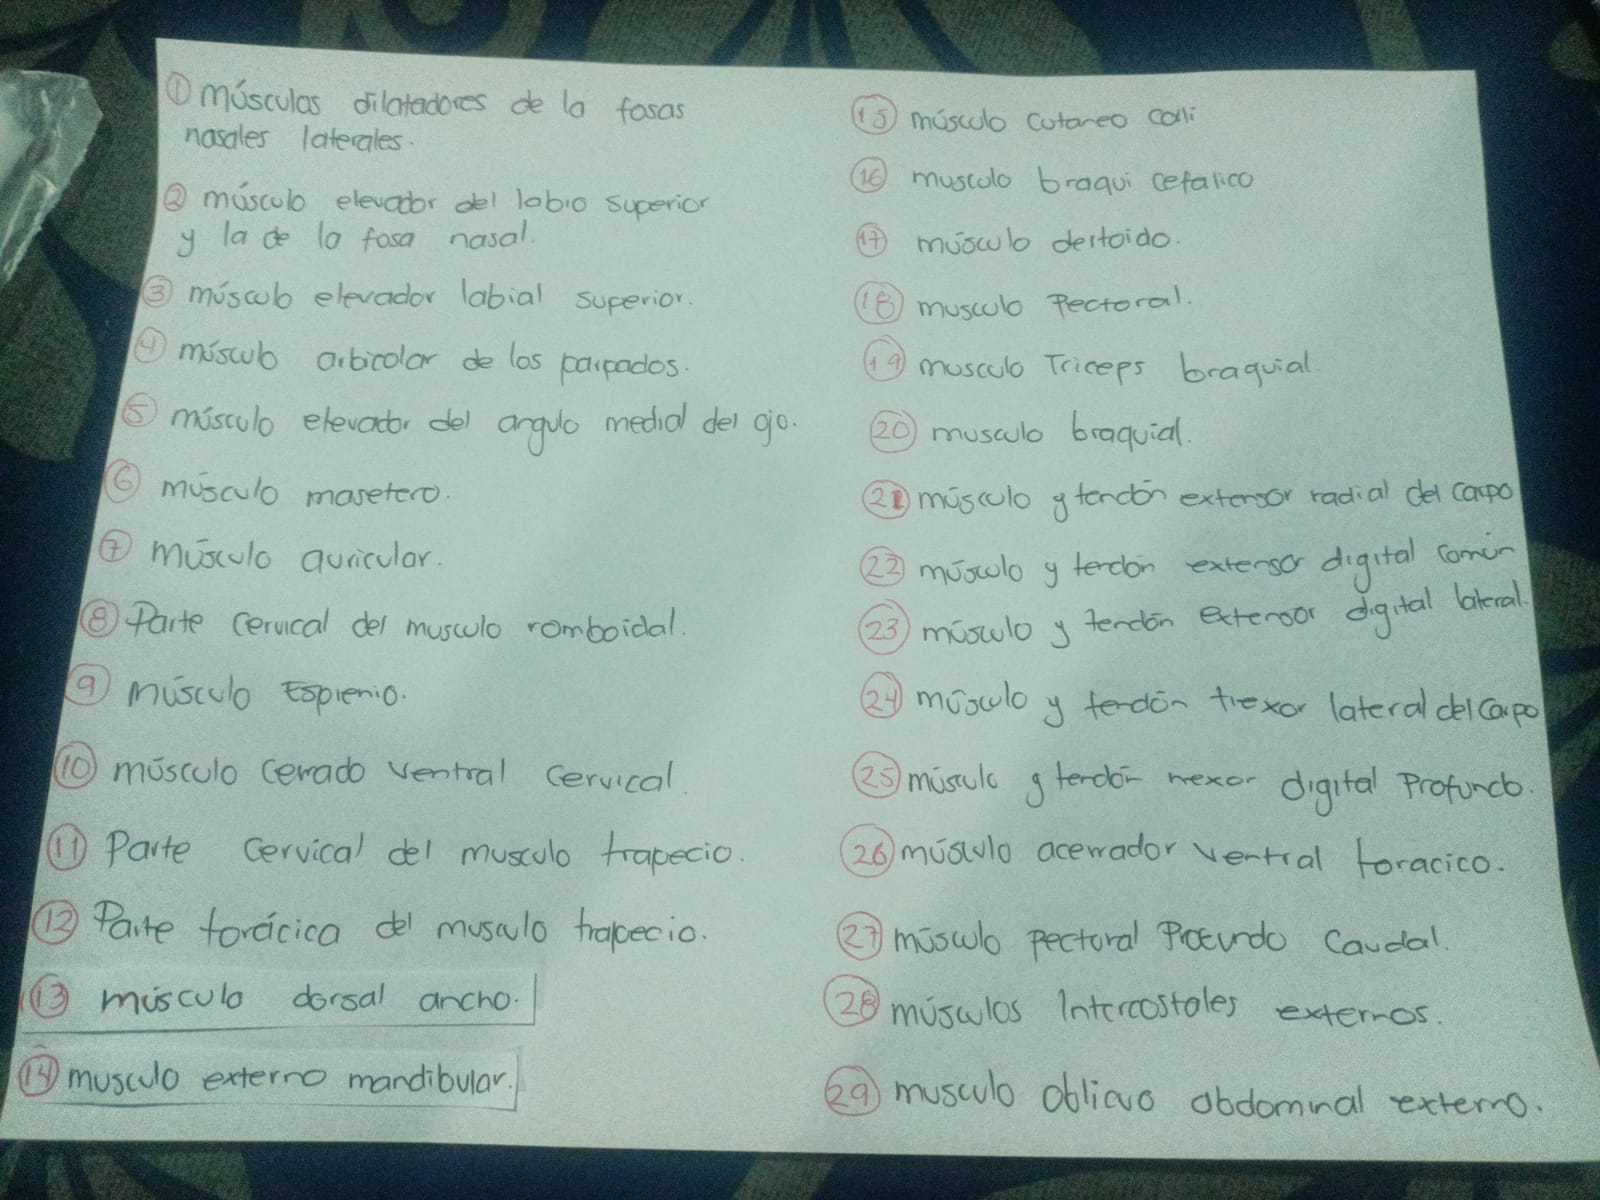 ① músculos dilatadores de la fosas
nasales laterales.
② músculo elevador del labio superior
y la de la fosa nasal.
③ músculo elevador labial superior.
④ músculo orbicolar de los parpados.
⑤ músculo elevador del angulo medial del ojo.
⑥ músculo masetero.
⑦ músculo auricular.
⑧ Parte cervical del musculo romboidal.
⑨ músculo Esplenio.
⑩ músculo cerrado ventral cervical.
⑪ Parte cervical del musculo trapecio.
⑫ Parte torácica del musculo trapecio.
⑬ músculo dorsal ancho.
⑭ musculo externo mandibular.
⑮ músculo cutaneo colli
⑯ musculo braqui cefalico
⑰ músculo deltoido.
⑱ musculo Pectoral.
⑲ musculo Triceps braquial.
⑳ musculo braquial.
㉑ músculo y tendón extensor radial del carpo
㉒ músculo y tendón extensor digital común
㉓ músculo y tendón extensor digital lateral.
㉔ músculo y tendón flexor lateral del carpo
㉕ músculo y tendón flexor digital Profundo.
㉖ músculo acerrador ventral toracico.
㉗ músculo pectoral Profundo caudal.
㉘ músculos Intercostales externos.
㉙ musculo oblicuo abdominal externo.